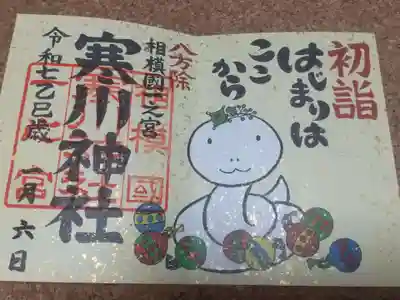 初詣
はじまりは
ここ
から
八方除
相模國一之宮
寒川神社
令和七乙巳歳 一月六日